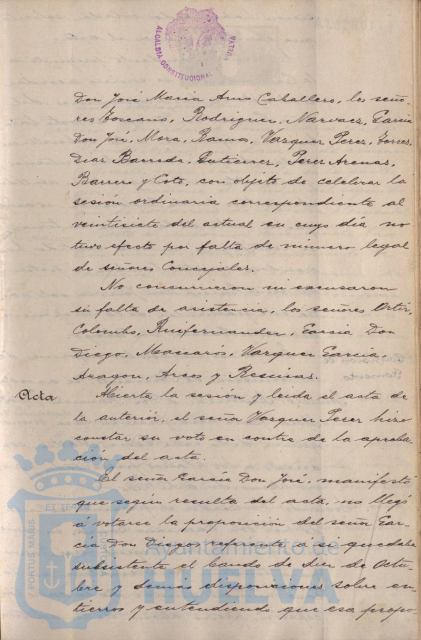 ALCALDIA CONSTITUCIONAL HUELVA
Don José Maria Amo Caballero, los seño-
res Toscano, Rodriguez, Narvaez, Garcia
Don José, Mora, Ramos, Vazquez Perez, Torres,
Diaz Barreda, Gutierrez, Perez Arenas,
Barrero y Coto, con objeto de celebrar la
sesión ordinaria correspondiente al
veintisiete del actual en cuyo día no
tuvo efecto por falta de número legal
de señores Concejales.
No concurrieron ni excusaron
su falta de asistencia, los señores Ortiz,
Colombo, Ruifernandez, Garcia Don
Diego, Mascarós, Vazquez Garcia,
Aragon, Arcos y Resuiras.
Acta
Abierta la sesión y leida el acta de
la anterior, el señor Vazquez Perez hizo
constar su voto en contra de la aproba-
ción del acta.
El señor Garcia Don José, manifestó
que según resulta del acta, no llegó
á votarse la proposición del señor Gar-
cia Don Diego referente a si quedaba
subsistente el bando de de Octu-
bre y demás disposiciones sobre en-
tierros y entendiendo que esa propo-
PORTUS MARIS
Ayuntamiento de
HUELVA